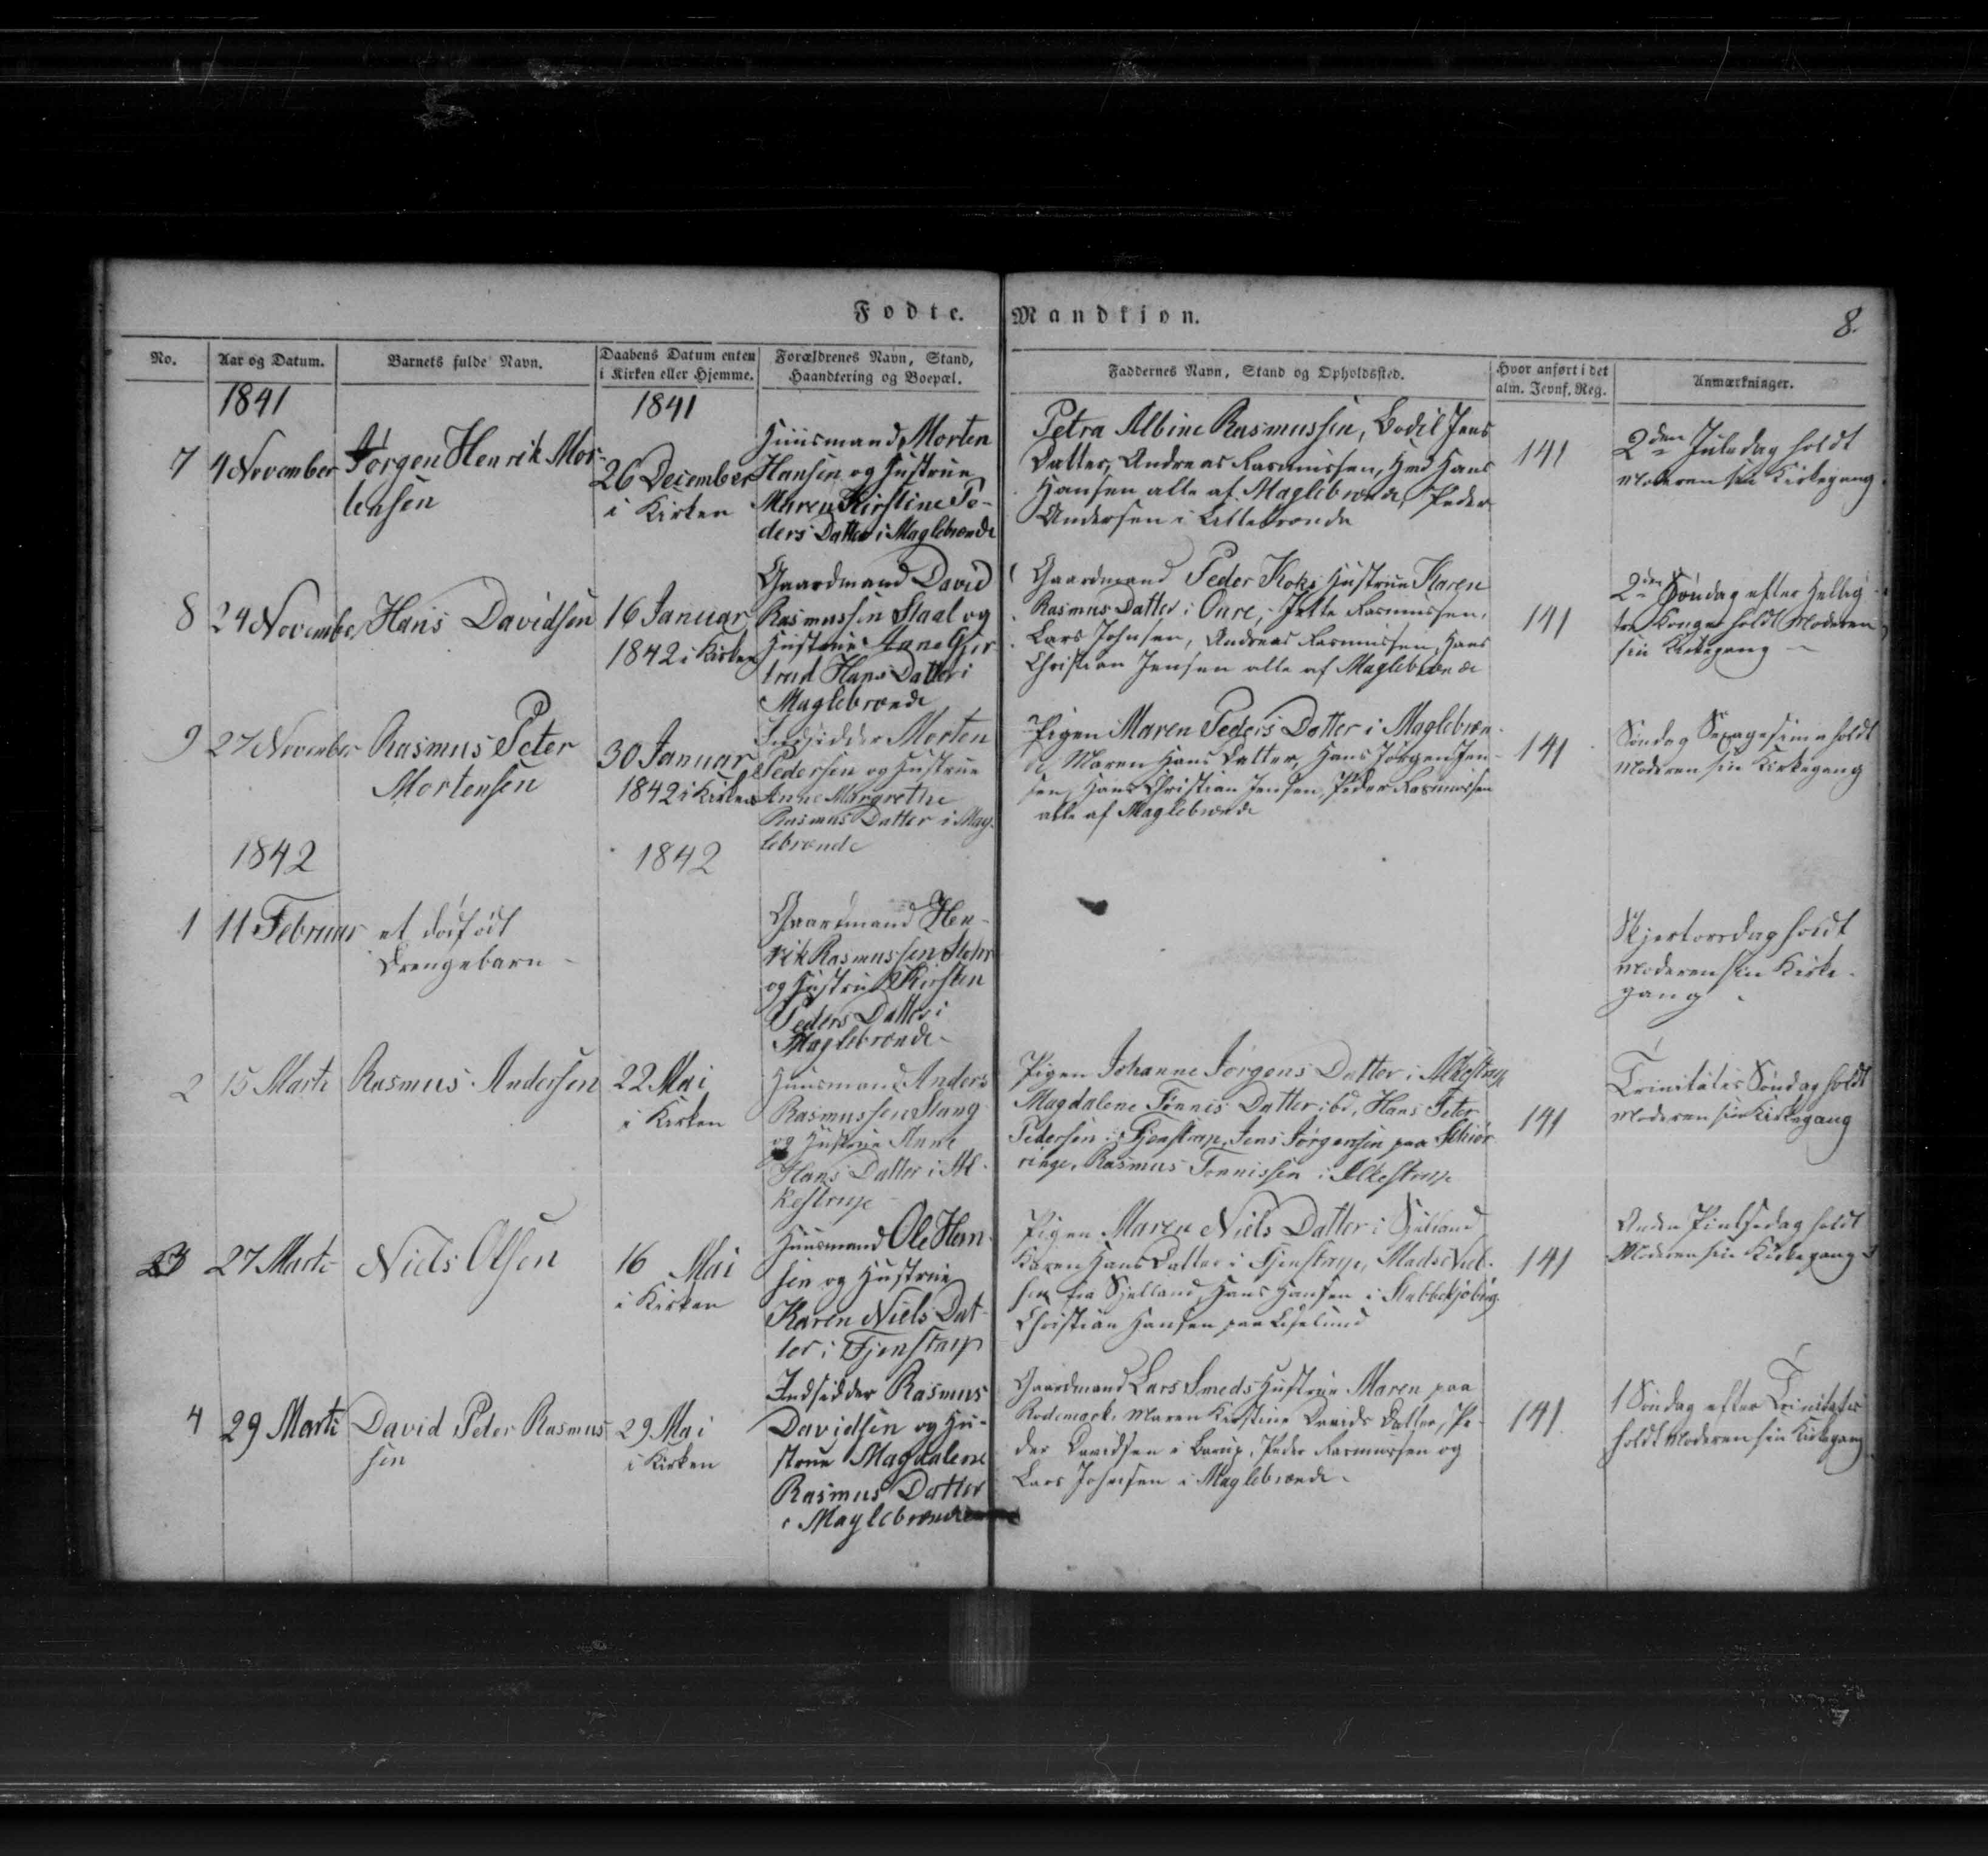 Fødte.
Mandkiøn.
8.
No.
Aar og Datum.
Barnets fulde Navn.
Daabens Datum enten
i Kirken eller Hjemme.
Forældrenes Navn, Stand,
Haandtering og Boepæl.
Faddernes Navn, Stand og Opholdssted.
Hvor anført i det
alm. Jevnf. Reg.
Anmærkninger.
1841
1841
7
4 November
Jørgen Henrik Mor-
tensen
26 December
i Kirken
Huusmand Morten
Hansen og Hustrue
Maren Kirstine Pe-
ders Datter i Maglebrænde
Petra Albine Rasmussen, Bodil Jens
Datter, Andreas Rasmussen, Hans
Hansen alle af Maglebrænde, Peder
Andersen i Lillebrænde
141
2den Juledag holdt
Moderen sin Kirkegang
8
24 November
Hans Davidsen
16 Januar
1842 i Kirken
Gaardmand David
Rasmussen Staal og
Hustrue Anne Gjer
trud Hans Datter i
Maglebrænde
Gaardmand Peder Koks Hustrue Karen
Rasmus Datter i Onre, Jette Rasmussen,
Lars Johnsen, Andreas Rasmussen, Hans
Christian Jensen alle af Maglebrænde
141
2den Søndag efter Hellig
tre Konger holdt Moderen
sin Kirkegang
9
27 November
Rasmus Peter
Mortensen
30 Januar
1842 i Kirken
Indsidder Morten
Pedersen og Hustrue
Anne Margrethe
Rasmus Datter i Mag-
lebrænde
Pigen Maren Peders Datter i Maglebræn-
de, Maren Hans Datter, Hans Jørgen Jen-
sen, Hans Christian Jensen, Peder Rasmussen
alle af Maglebrænde
141
Søndag Sexagesima holdt
Moderen sin Kirkegang
1842
1842
1
11 Februar
et dødfødt
Drengebarn
Gaardmand Hen-
rik Rasmussen
og Hustrue Kirsten
Peders Datter i
Maglebrænde
Skjertorsdag holdt
Moderen sin Kirke-
gang
2
15 Marts
Rasmus Andersen
22 Mai
i Kirken
Huusmand Anders
Rasmussen Stang
og Hustrue Anne
Hans Datter i Al-
kestrup
Pigen Johanne Jørgens Datter i Alkestrup
Magdalene Tønnis Datter ibd, Hans Peter
Pedersen i Fjenstrup, Jens Jørgensen paa
Rasmus Tønnissen i Alkestrup
141
Trinitatis Søndag holdt
Moderen sin Kirkegang
3
27 Marts
Niels Olsen
16 Mai
i Kirken
Huusmand Ole Han-
sen og Hustrue
Karen Niels Dat-
ter i Fjenstrup
Pigen Maren Niels Datter i Sjelland
Karen Hans Datter i Fjenstrup, Mads Niel-
sen fra Sjelland, Hans Hansen i Stubbekjøbing
Christian Hansen paa Liselund
141
Anden Pintsedag holdt
Moderen sin Kirkegang
4
29 Marts
David Peter Rasmus-
sen
29 Mai
i Kirken
Indsidder Rasmus
Davidsen og Hu-
strue Magdalene
Rasmus Datter
i Maglebrænde
Gaardmand Lars Smeds Hustrue Maren paa
Rodemark, Maren Kirstine Davids Datter, Pe-
der Davidsen i Borup, Peder Rasmussen og
Lars Johnsen i Maglebrænde
141
1 Søndag efter Trinitatis
holdt Moderen sin Kirkegang